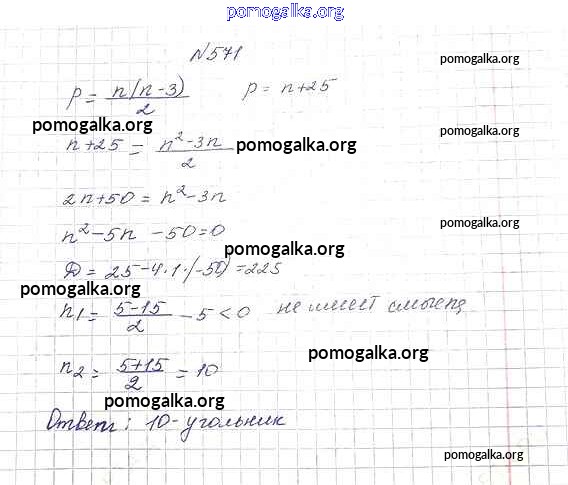 pomogalka.org
N571
pomogalka.org
p = n(n-3)/2 p = n+25
pomogalka.org
pomogalka.org
n+25 = n²-3n/2
pomogalka.org
2n+50 = n²-3n
n²-5n -50=0
pomogalka.org
pomogalka.org
D = 25-4·1·(-50)=225
pomogalka.org
n₁ = 5-15/2 -5<0 не имеет смысла
pomogalka.org
n₂ = 5+15/2 = 10
pomogalka.org
Ответ: 10-угольник
pomogalka.org